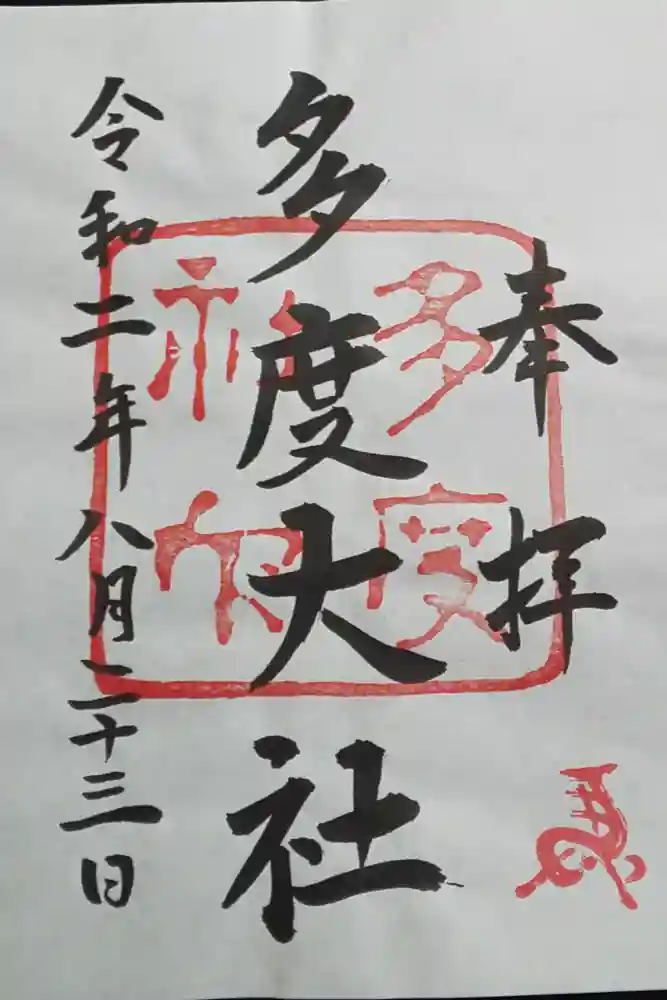 奉拝
多度大社
令和二年八月二十三日
多度
社印